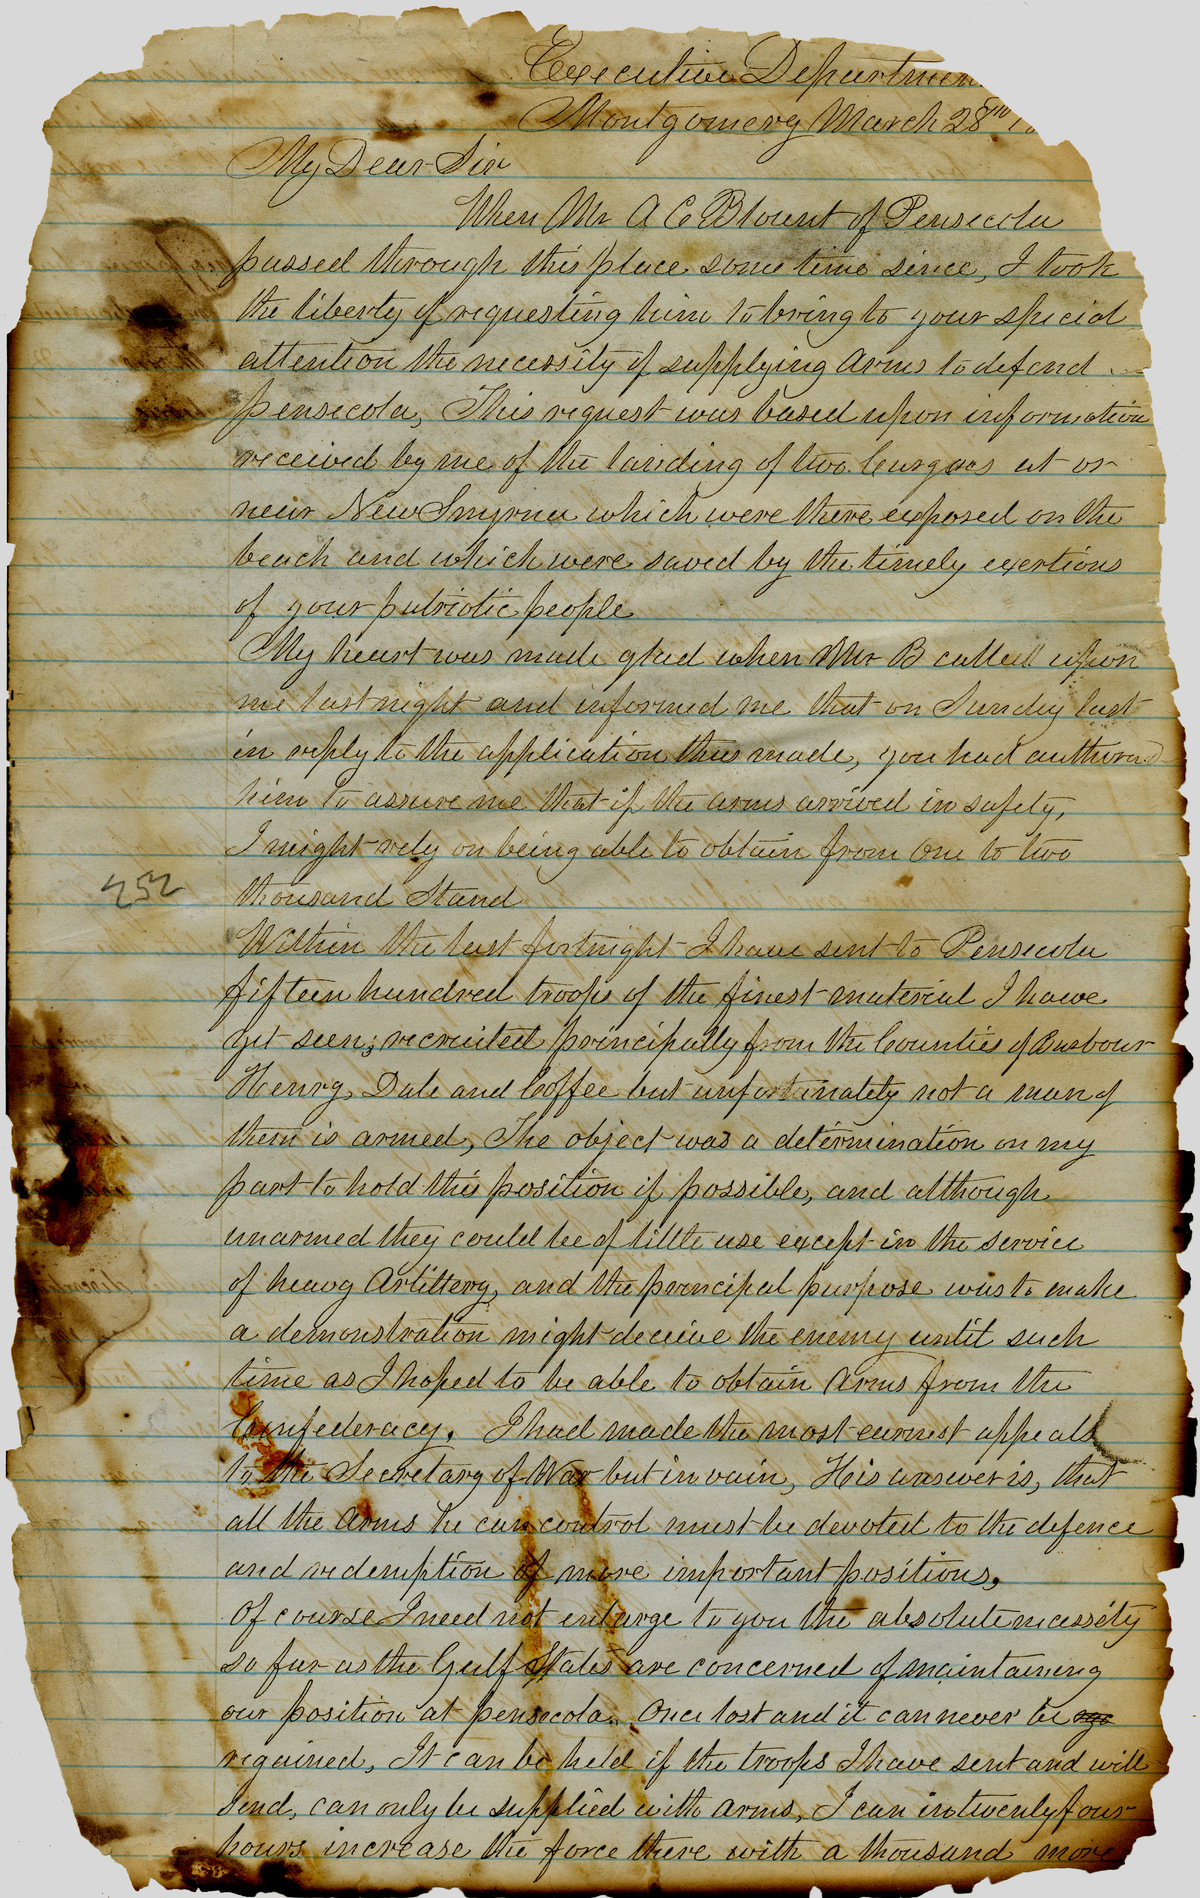 Executive Departmen
Montgomery March 28th
My Dear Sir
When Mr A C Blount of Pensecola
passed through this place some time since, I took
the liberty of requesting him to bring to your special
attention the necessity of supplying arms to defend
Pensecola, This request was based upon information
received by me of the landing of two Cargoes at or
near New Smyrna which were there exposed on the
beach and which were saved by the timely exertions
of your patriotic people
My heart was made glad when Mr B called upon
me last night and informed me that on Sunday last
in reply to the application thus made, you had authorized
him to assure me that if the arms arrived in safety,
I might rely on being able to obtain from one to two
252
thousand Stand
Within the last fortnight I have sent to Pensecola
fifteen hundred troops of the finest material I have
yet seen; recruited principally from the Counties of Barbour
Henry, Dale and Coffee but unfortunately not a man of
them is armed, The object was a determination on my
part to hold this position if possible, and although
unarmed they could be of little use except in the service
of heavy Artillery, and the principal purpose was to make
a demonstration might deceive the enemy until such
time as I hoped to be able to obtain Arms from the
Confederacy. I had made the most earnest appeals
to the Secretary of War but in vain, His answer is, that
all the Arms he can control must be devoted to the defence
and redemption of more important positions.
Of course I need not enlarge to you the absolute necessity
so far as the Gulf States are concerned of maintaining
our position at pensecola. Once lost and it can never be
regained, It can be held if the troops I have sent and will
send, can only be supplied with arms, I can in twenty four
hours increase the force there with a thousand more